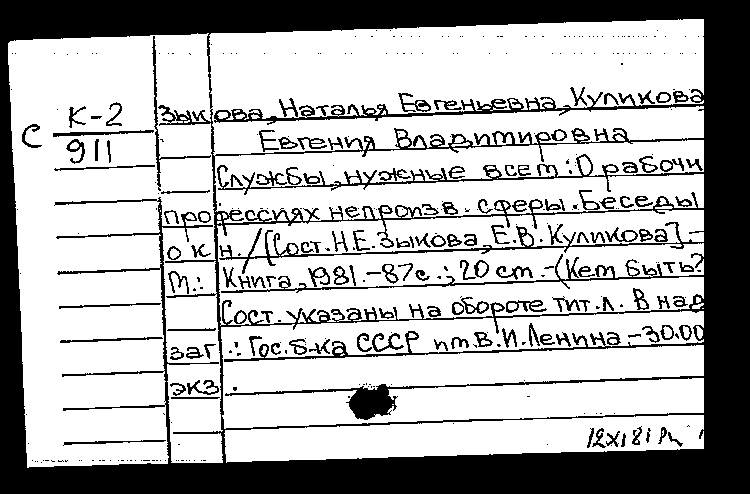 Зыкова, Наталья Евгеньевна, Куликова
С К-2
911
Евгения Владимировна
Службы, нужные всем: О рабочи
профессиях непроизв. сферы. Беседы
о кн. / [Сост. Н.Е. Зыкова, Е.В. Куликова]. -
М.: Книга, 1981. - 87с.; 20 см. - (Кем быть?
Сост. указаны на обороте тит. л. В над
заг.: Гос. б-ка СССР им В.И. Ленина. - 30.00
экз.
12 XI 81